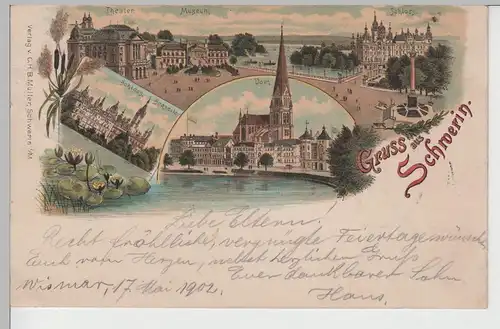 Theater.
Museum.
Schloss.
Verlag v. C.H.B. Müller, Schwerin i/M.
Dom.
Gruss aus
Schwerin.
Liebe Eltern!
Recht fröhliche, vergnügte Feiertage wünscht
Euch von Herzen, nebst herzlichen Gruß
Euer dankbarer Sohn
Wismar, 17 Mai 1902.
Hans.